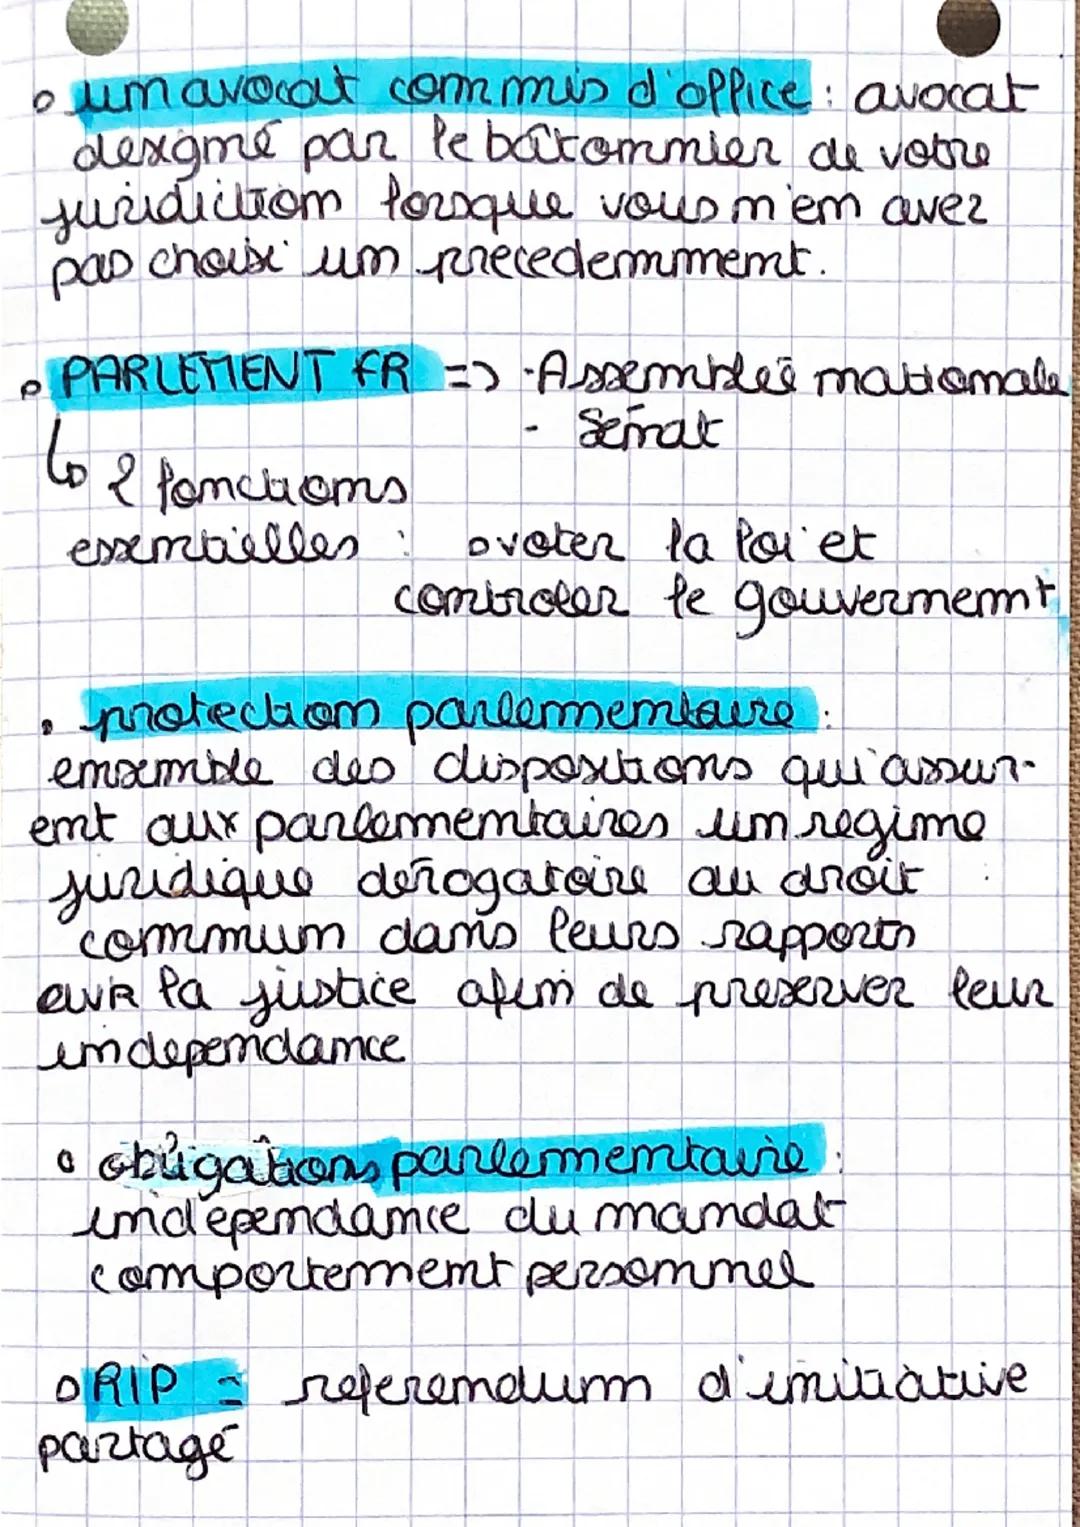 un avocat commis d'office : avocat
desigmé par le bâtonnier de votre
juridiction lorsque vous n'en avez
pas choisi un precedemment.
PARLEMENT FR => - Assemblée nationale
- Sénat
↳ 2 fonctions
essentielles : voter la loi et
controler le gouvernemnt
protection parlementaire :
ensemble des dispositions qui assur-
ent aux parlementaires un regime
juridique dérogatoire au droit
commun dans leurs rapports
avk la justice afin de preserver leur
independance
obligations parlementaire :
indépendance du mandat
comportement personnel
RIP = referendum d'initiative
partagé